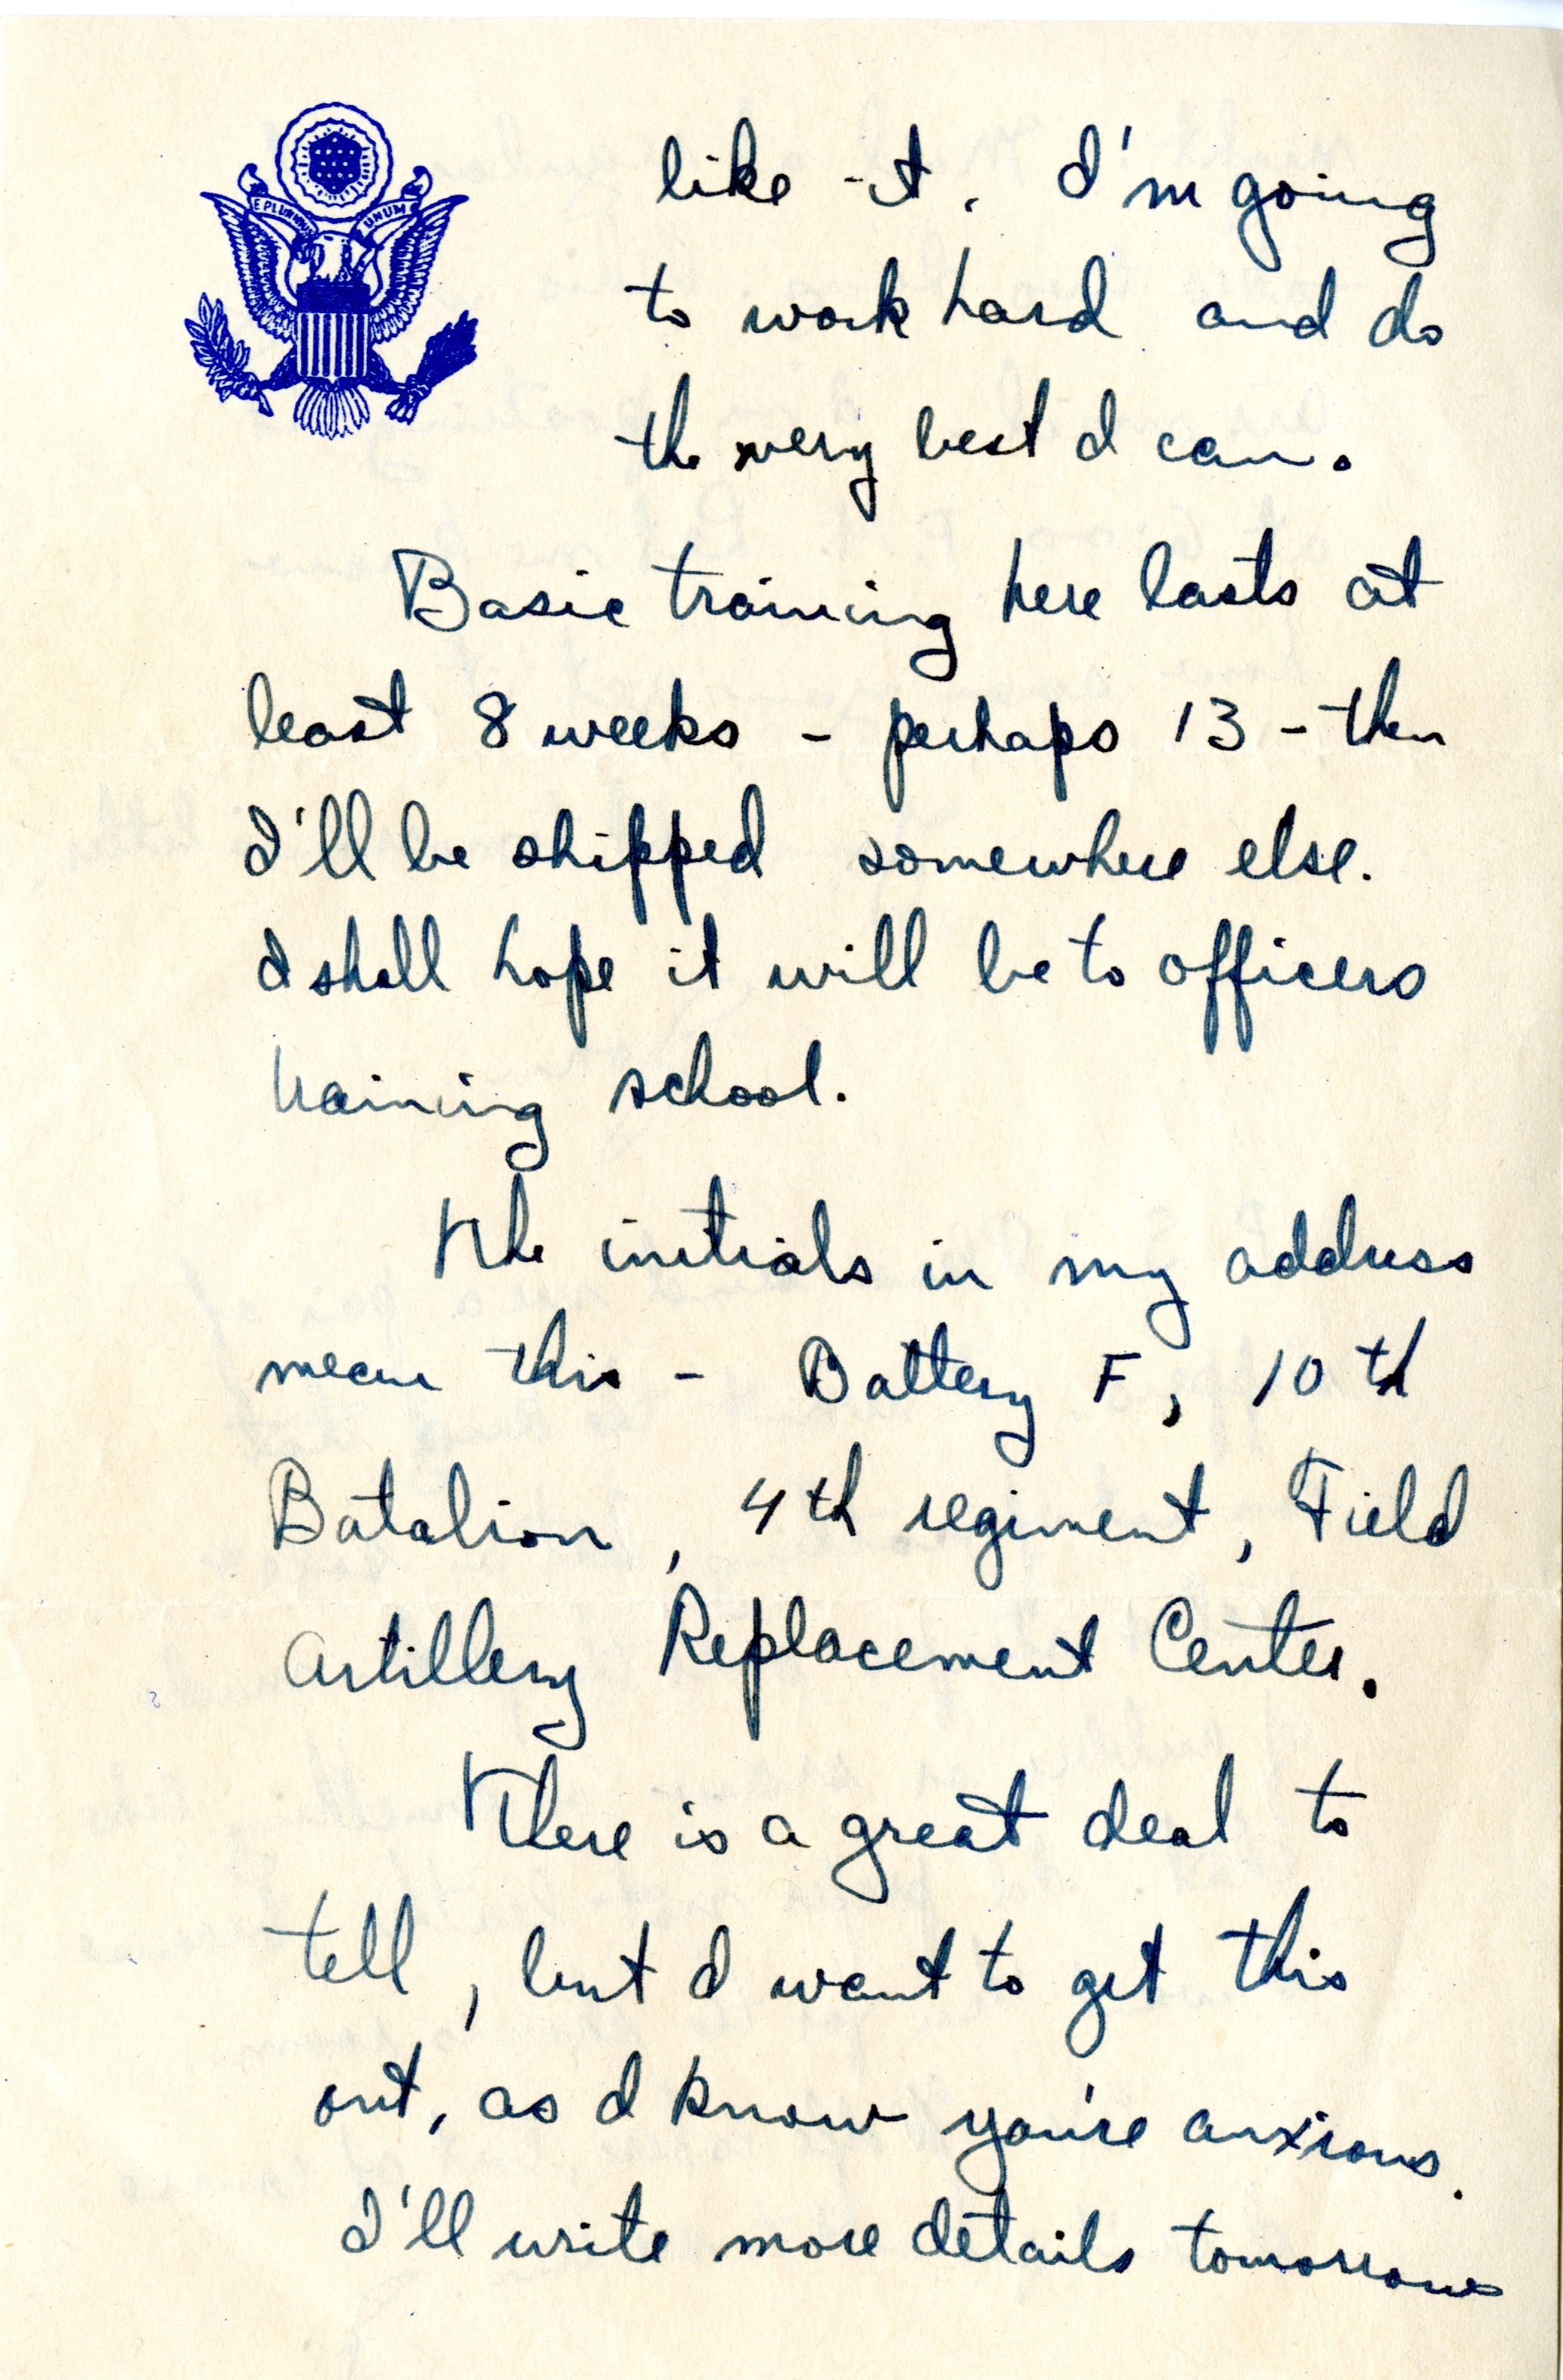 E PLURIBUS UNUM
like it. I'm going
to work hard and do
the very best I can.
Basic training here lasts at
least 8 weeks - perhaps 13 - then
I'll be shipped somewhere else.
I shall hope it will be to officers
training school.
The initials in my address
mean this - Battery F, 10th
Batalion, 4th regiment, Field
Artillery Replacement Center.
There is a great deal to
tell, but I want to get this
out, as I know you're anxious.
I'll write more details tomorrow